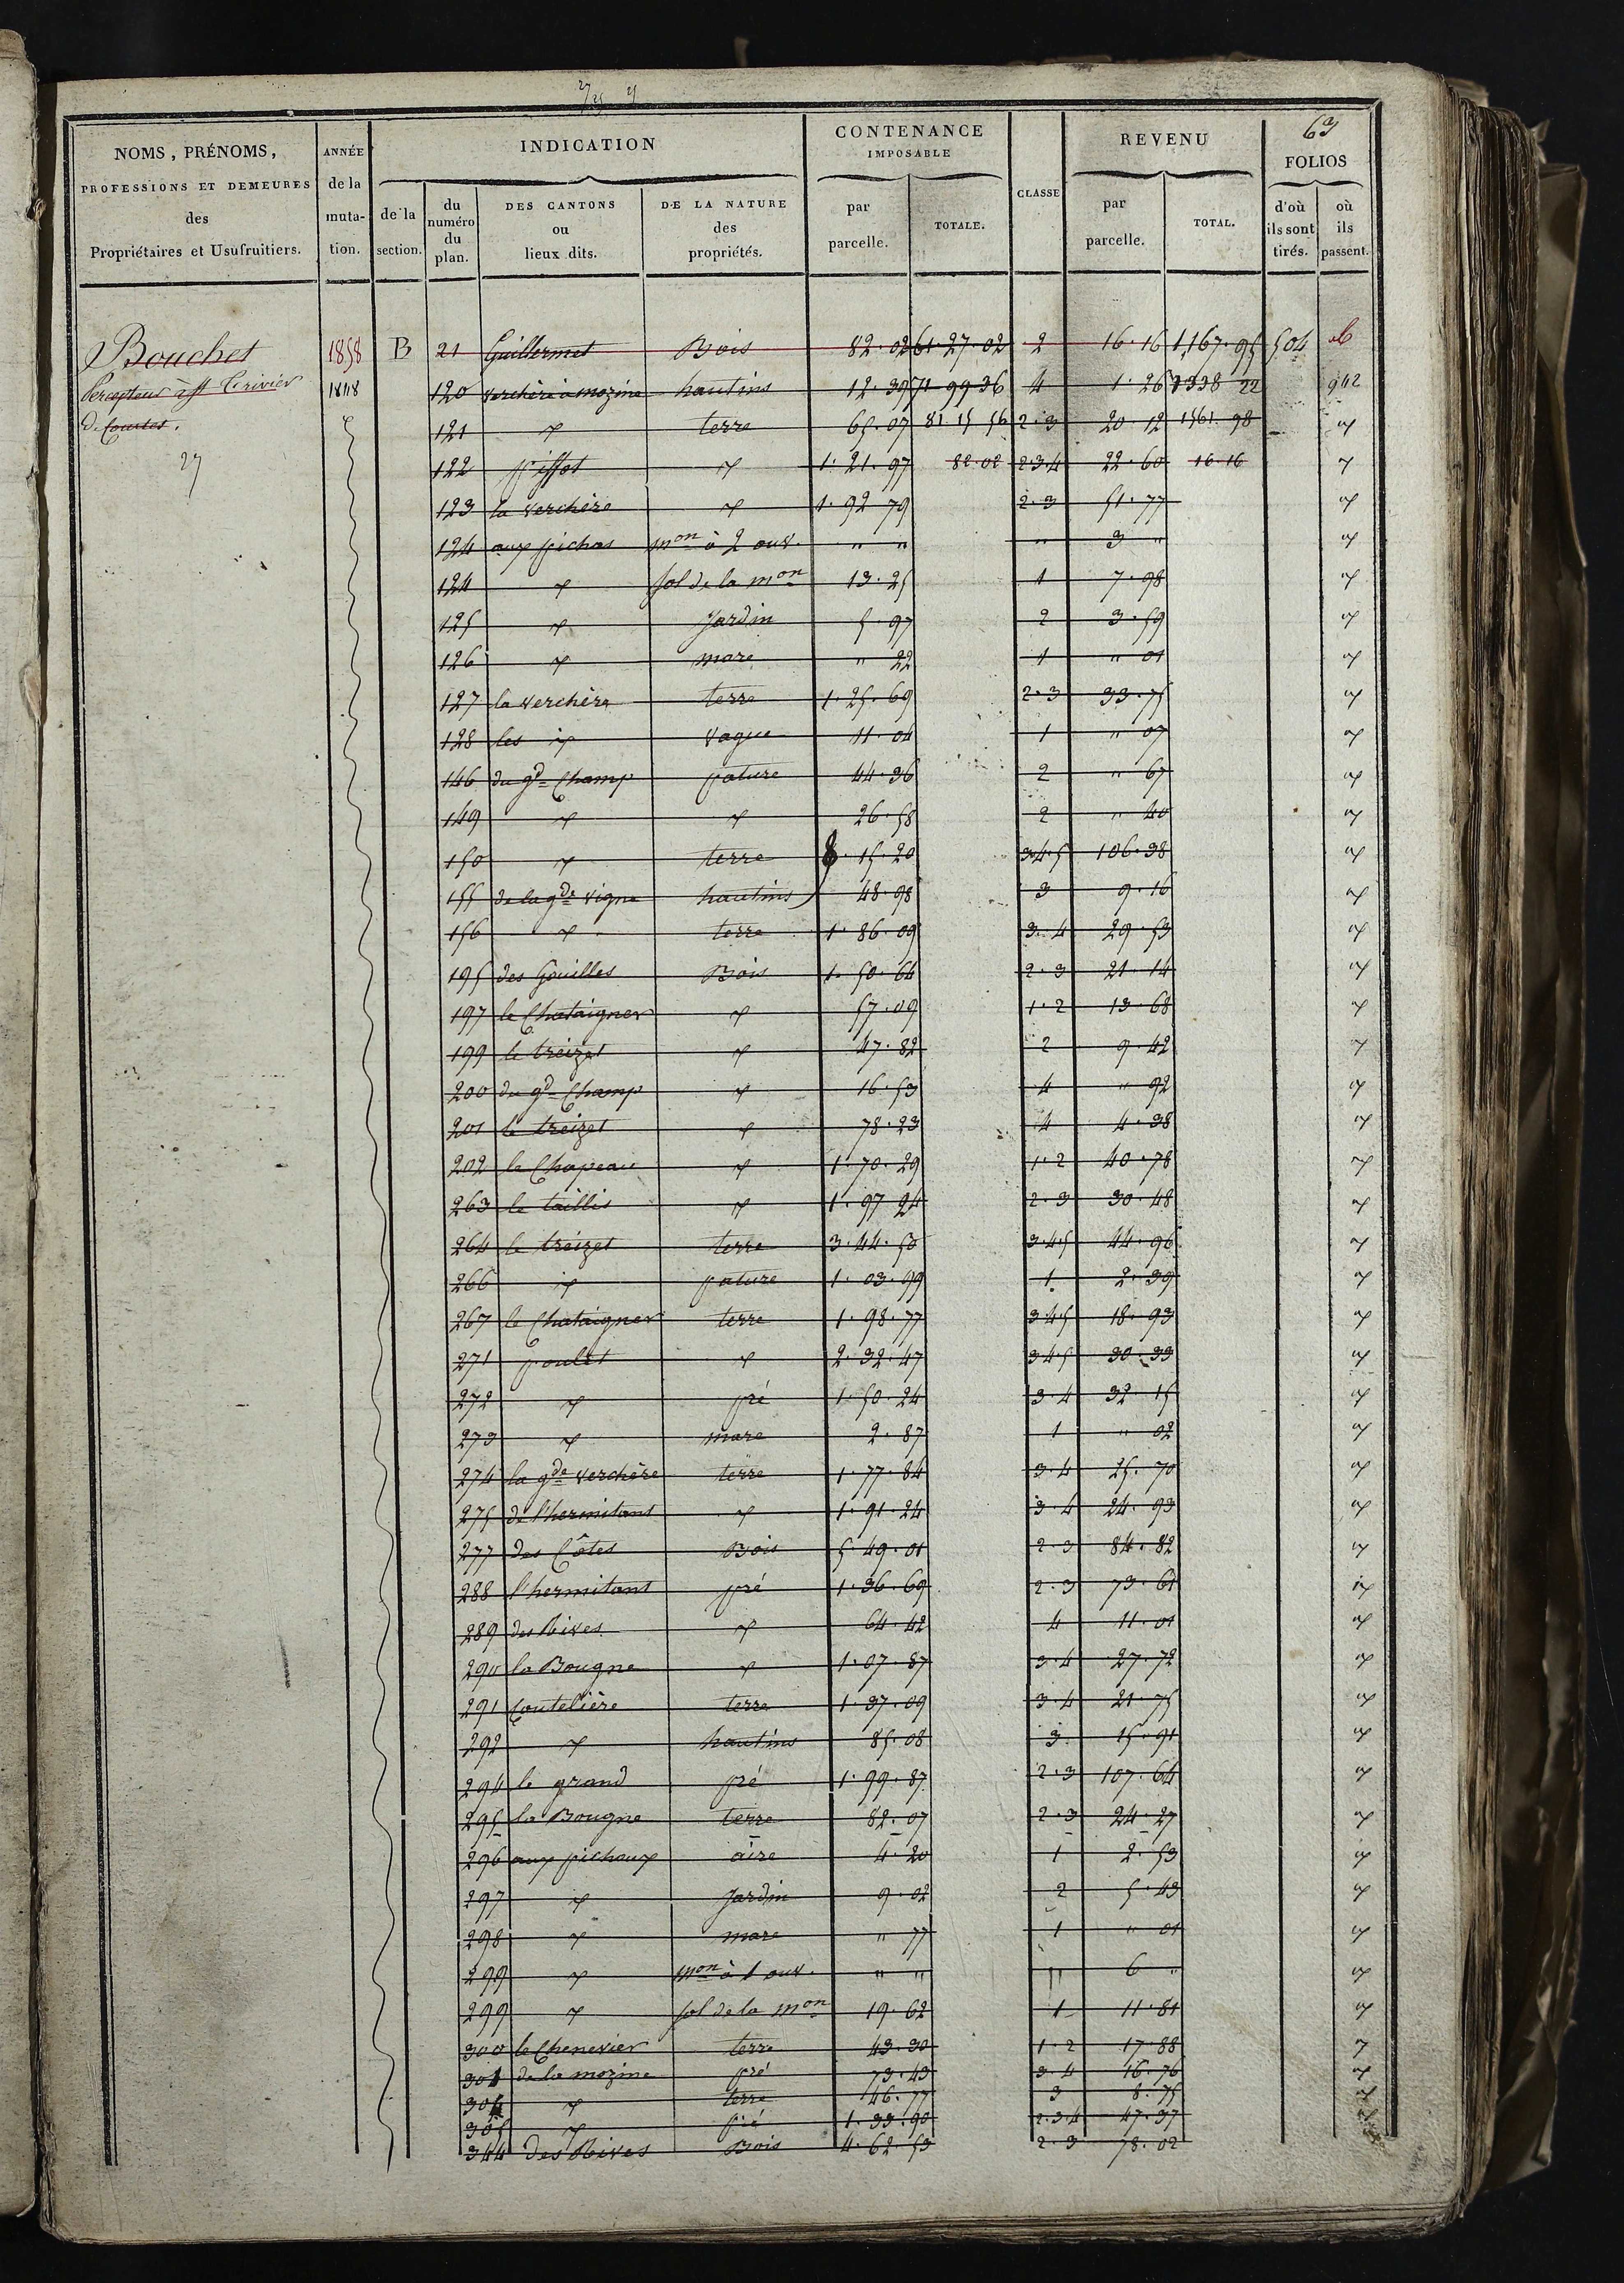 27/25 21
63
NOMS, PRÉNOMS, PROFESSIONS ET DEMEURES des Propriétaires et Usufruitiers.
ANNÉE de la muta- tion.
INDICATION
de la section.
du numéro du plan.
DES CANTONS ou lieux dits.
DE LA NATURE des propriétés.
CONTENANCE IMPOSABLE
par parcelle.
TOTALE.
CLASSE
REVENU
par parcelle.
TOTAL.
FOLIOS
d'où ils sont tirés.
où ils passent.
Bouchet 1858 B 21 Guillermet Bois 82.02 61.27.02 2 16.16 1,167.95 504
Percepteur à 1848 120 verchère à mozine hautins 12.39 71 99 36 4 1.26 1338 22 942
De Courtes. 121 terre 65.07 81.15 56 2.3 20.12 1561.98
27 122 pissot 1.21.97 82.02 2.3.4 22.60 16.16
123 la verchère 1.92 79 2.3 51.77
124 aux pichas mon à 2 ouv. " " " 3 "
124 sol de la mon 13.25 1 7.98
125 Jardin 5.97 2 3.59
126 mare " 22 1 " 01
127 la verchère terre 1.25.69 2.3 33.75
128 les vague 11.04 1 " 07
146 du gd Champ pature 44.36 2 " 67
149 26.58 2 " 40
150 terre 8.15.20 3.4.5 106.38
155 de la gde vigne hautins 48.98 3 9.16
156 terre 1.86.09 3.4 29.53
195 des Gouilles Bois 1.50.64 2.3 21.14
197 le Chataigner 57.09 1.2 13.68
199 le treizet 47.82 2 9.42
200 du gd Champ 16.53 4 " 92
201 le treizet 78.23 4 4.38
202 le Chapeau 1.70.29 1.2 40.78
263 le taillis 1.97 24 2.3 30.48
264 le treizet terre 3.44.50 3.4.5 44.96
266 pature 1.03.99 1 2.39
267 le Chataigner terre 1.98.77 3.4.5 18.93
271 poulet 2.32.47 3.4.5 30.33
272 pré 1.50.24 3.4 32.15
273 mare 2.87 1 " 02
274 la gde verchère terre 1.77.84 3.4 25.70
275 de l'hermitant 1.91.24 3.4 24.93
277 des Côtes Bois 5 49.01 2.3 84.82
288 l'hermitant pré 1.36.69 2.3 73.61
289 des Rives 64.42 4 11.01
290 la Bougne 1.07.87 3.4 27.72
291 Coutelière terre 1.37.09 3.4 21.75
292 hautins 85.08 3 15.91
294 le grand pré 1.99.87 2.3 107.64
295 la Bougne terre 82.07 2.3 24.27
296 aux pichoux aire 4.20 1 2.53
297 Jardin 9.02 2 5.43
298 mare " 77 1 " 01
299 mon à 1 ouv. " " " 6 "
299 sol de la mon 19.62 1 11.81
300 le Chenevier terre 43.30 1.2 17.88
301 de la mozine pré 73.43 3.4 16.76
304 terre 46.77 3 8.75
305 pré 1.33.90 2.3.4 47.37
344 des Rives Bois 4.62 53 2.3 78.02